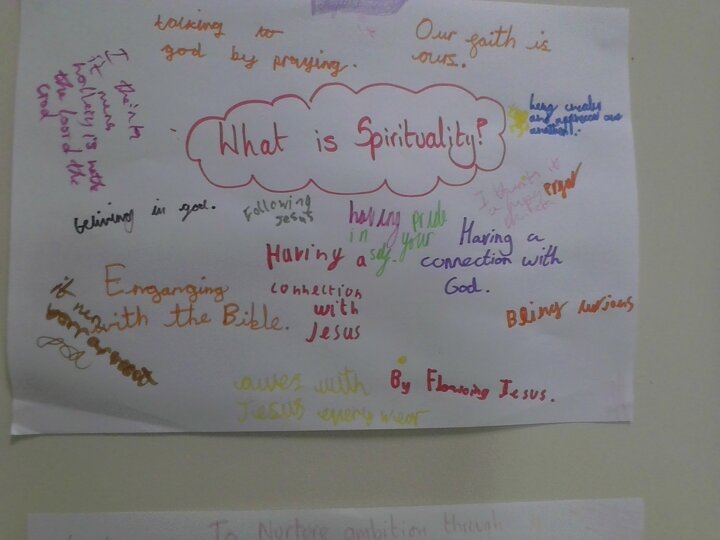 talking to
god by praying.
Our faith is
ours.
I think
it mens
the loord the
God
What is Spirituality?
being creativ
and
beliving in god.
Following
Jesus
having pride
in your
self.
I think it
prayer
Having a
connection with
God.
Having a
connection
with
Jesus
Enganging
with the Bible.
it
Being
By Flowing Jesus.
with
Jesus every wear
To Nurture ambition through